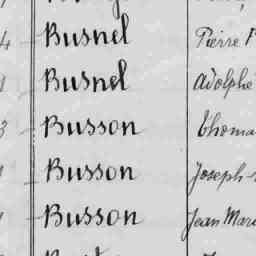 4 Busnel Pierre
1 Busnel Adolphe
3 Busson Thoma
1 Busson Joseph
1 Busson Jean Mari